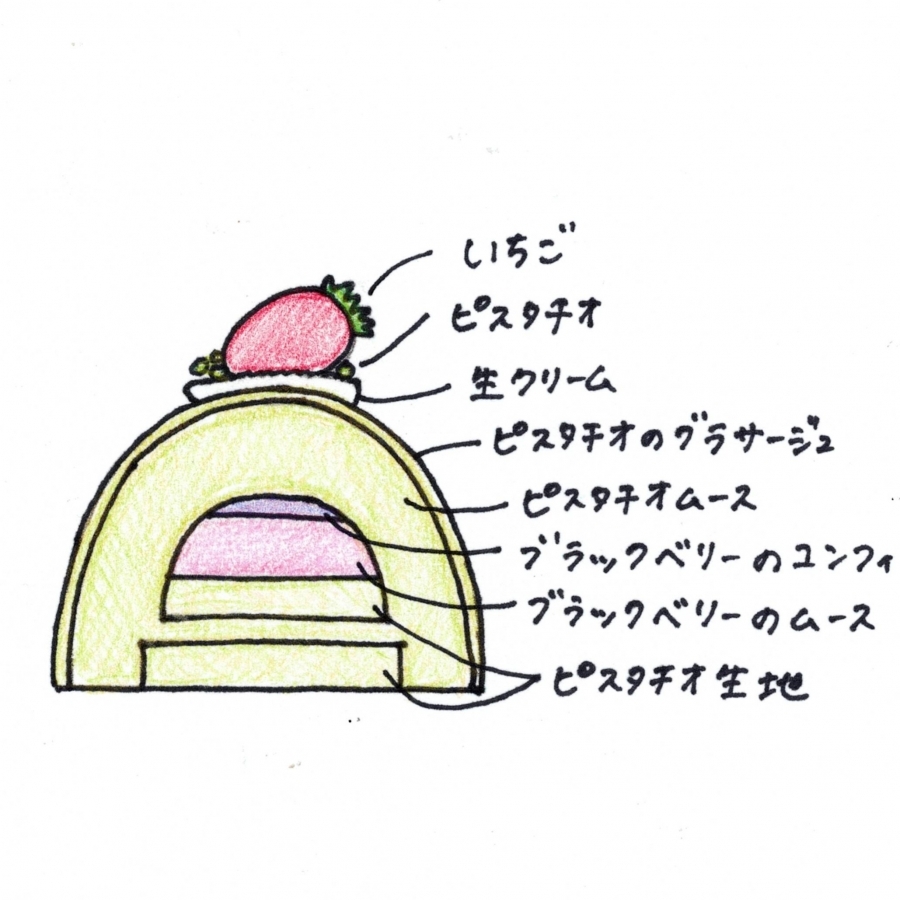 いちご
ピスタチオ
生クリーム
ピスタチオのグラサージュ
ピスタチオムース
ブラックベリーのコンフィ
ブラックベリーのムース
ピスタチオ生地